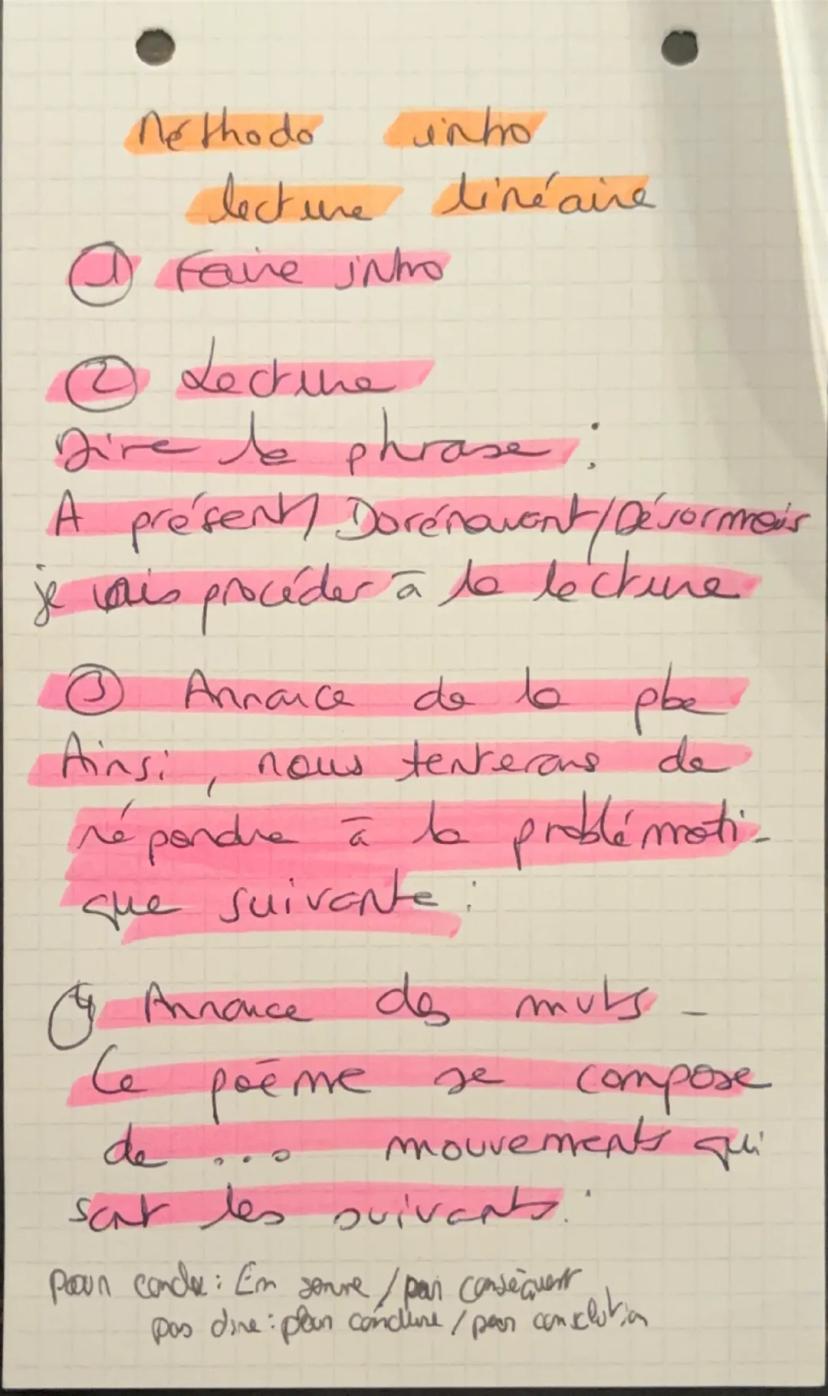 Méthodo intro
lecture linéaire
① Faire intro
② Lecture
Dire la phrase :
A présent/ Dorénavant/Désormais
je vais procéder à la lecture
③ Annonce de la pbe
Ainsi, nous tenterons de
répondre à la problémati-
que suivante :
④ Annonce des mvts -
Ce poème se compose
de ... mouvements qui
sont les suivants :
pour conclu : En somme / par conséquent
pas dire : pour conclure / pour conclution